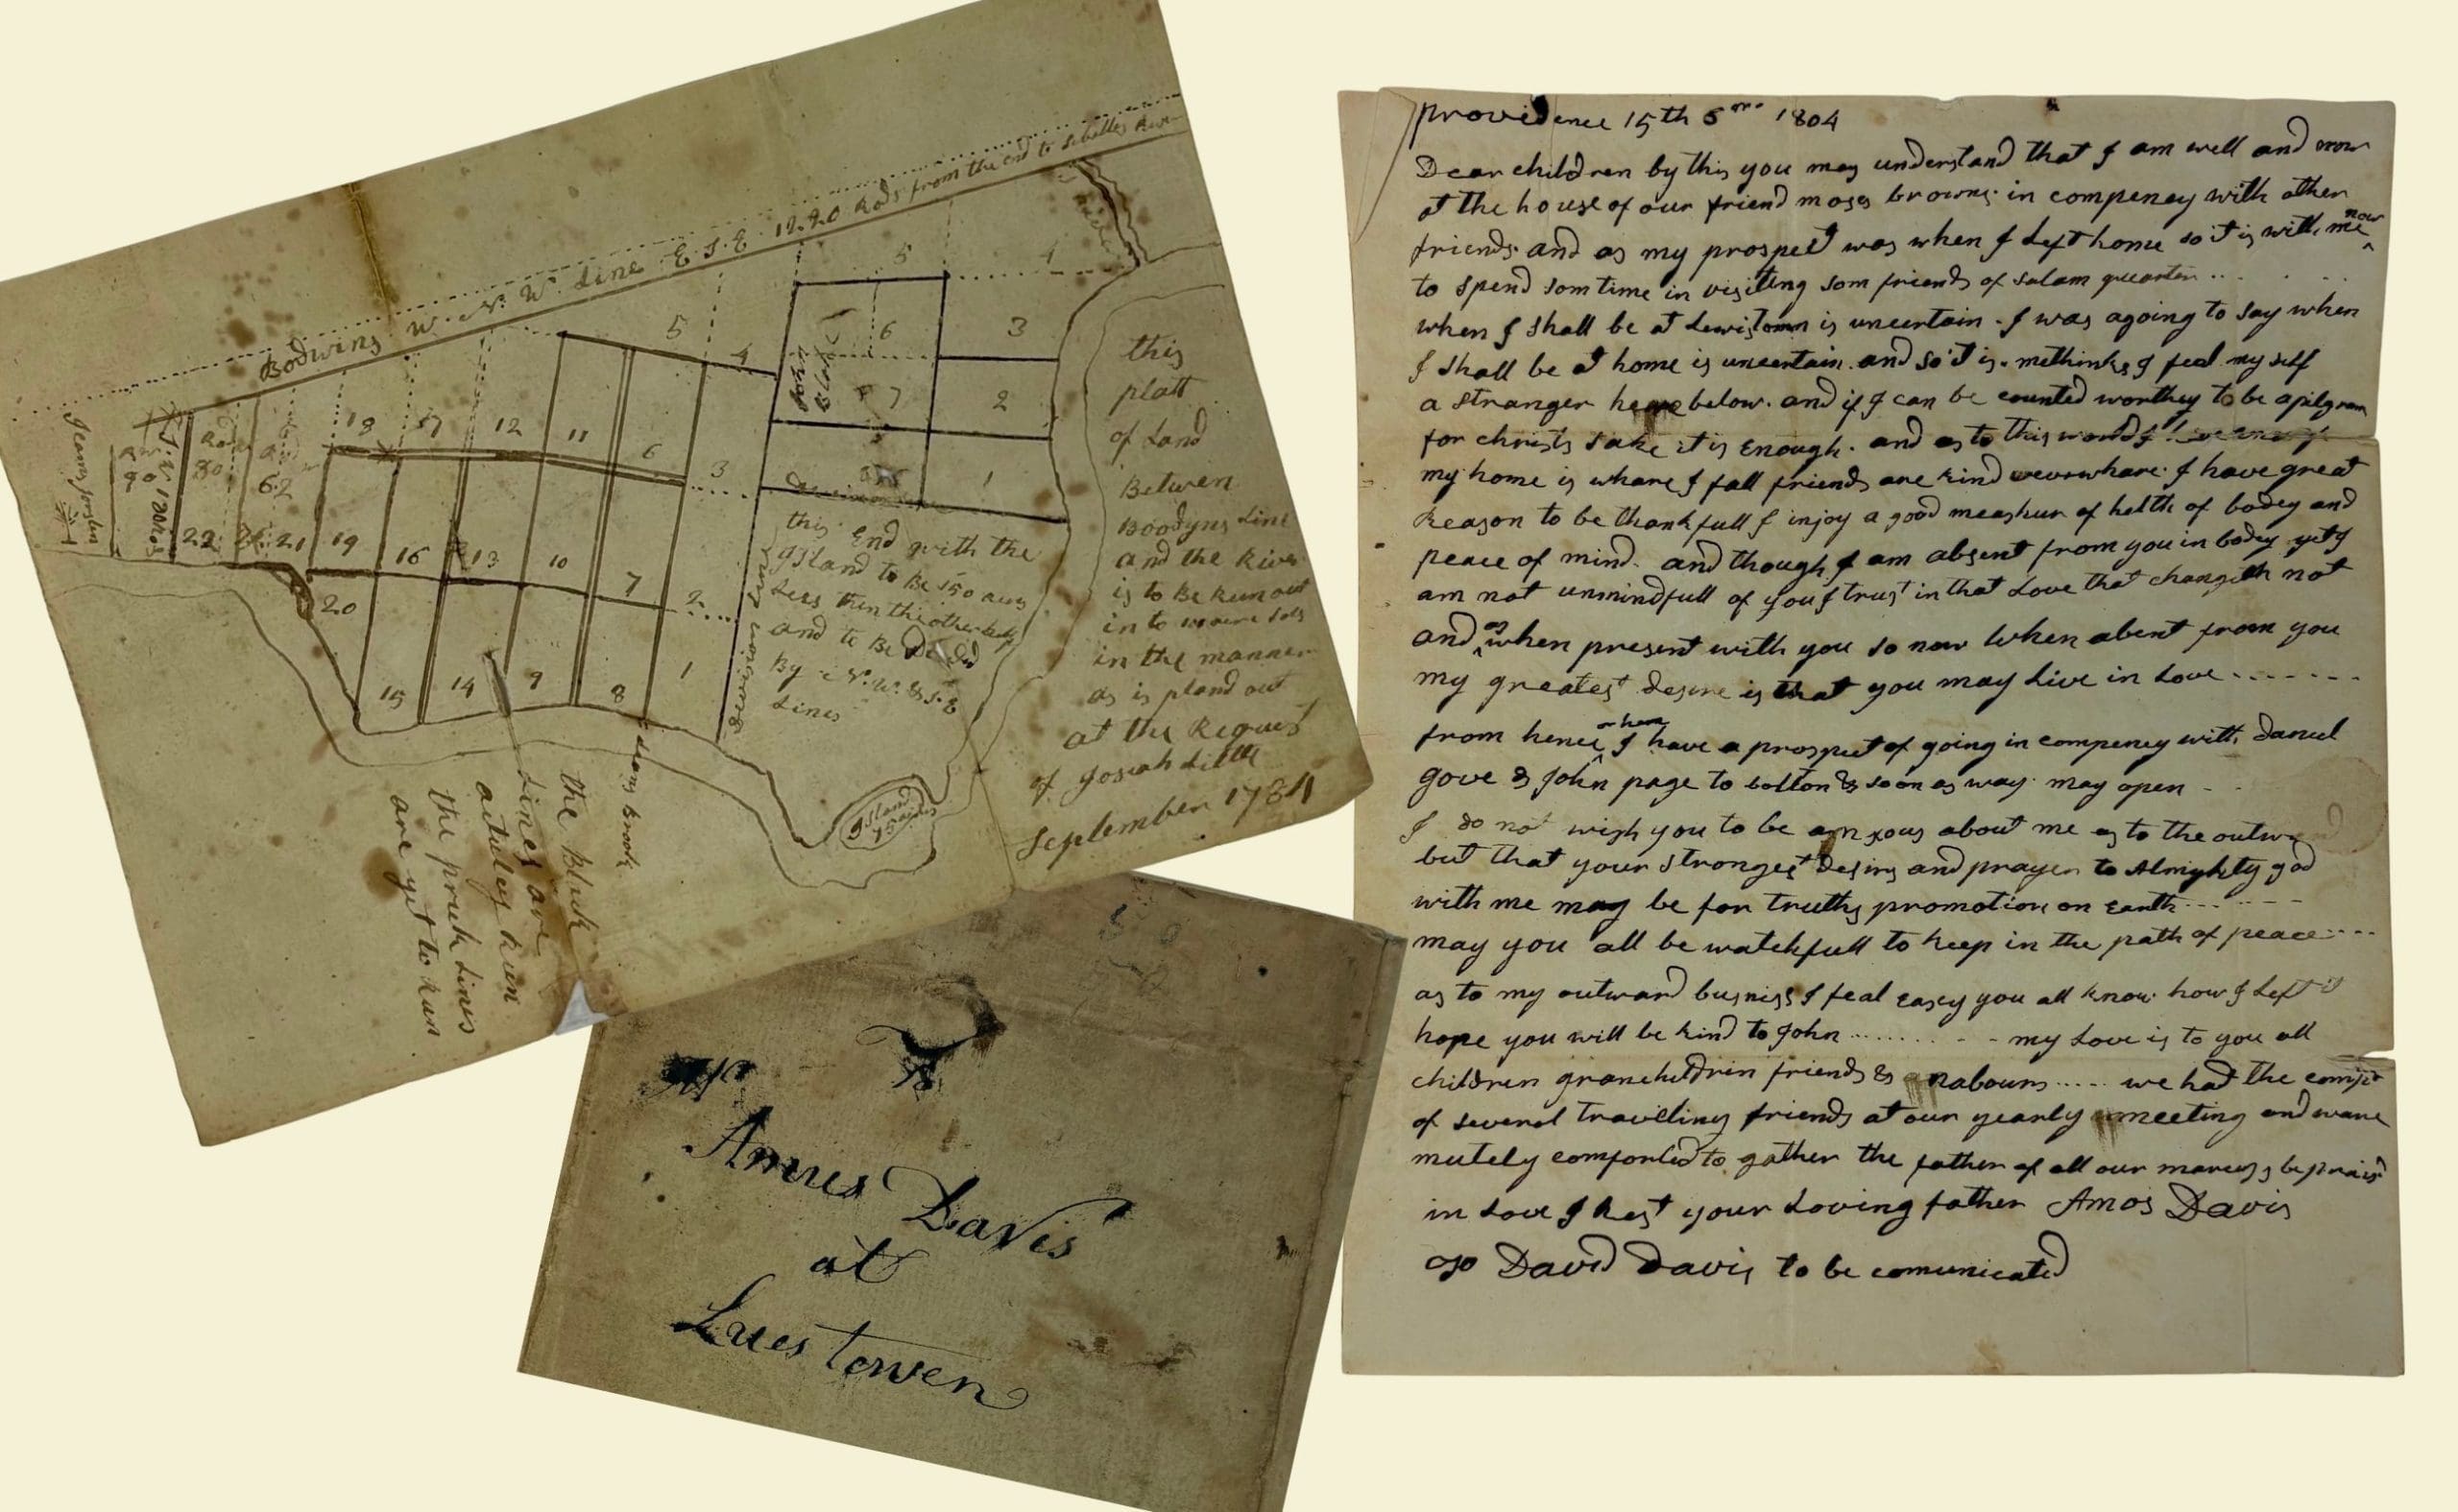 Bodwins W. N. W. Line E S E 1220 Rods from the end to Sebattes River
River
5 4
5 4
6 3
7 2
1
18 17 12 11 6 3
Rods 80
62
90
22 21 19 16 13 10 7 2
20
15 14 9 8 1
Jeams Joslin
devision Line
this End with the
Island to be 150 acrs
Less then the other
and to Be
By N. W. & S. E
Lines
this
platt
of Land
Betwen
Boodyns Line
and the River
is to Be Run out
in to more Lots
in the manner
as is pland out
at the Request
of Josiah Little
September 1784
Island
75 acres
Brook
the Black
Lines are
actuley Run
the prick Lines
are yet to Run
To
Mr
Amus Davis
at
Lues towen
providence 15th 6mo 1804
Dear children by this you may understand that I am well and now
at the house of our friend moses browns in compeney with other
friends and as my prospect was when I Left home so it is with me now
to spend som time in visiting som friends of salam quarter
when I shall be at Lewistown is uncertain . I was agoing to say when
I shall be at home is uncertain . and so it is . methinks I feal my self
a stranger here below . and if I can be counted worthey to be a pilgram
for christs sake it is Enough . and as to this world I
my home is whare I fall friends are kind evrewhare . I have great
Reason to be thankfull I injoy a good meashur of helth of bodey and
peace of mind . and though I am absent from you in bodey yet I
am not unmindfull of you I trust in that Love that changeth not
and as when present with you so now when abent from you
my greatest desire is that you may Live in Love .......
from hence I have a prospect of going in compeney with daniel
gove & John page to bolton & soon as way may open
I do not wish you to be anxous about me as to the outward
but that your strongest desirs and prayer to Almighty god
with me may be for truths promotion on Earth
may you all be watchfull to keep in the path of peace ....
as to my outward busniss I feal Easey you all know how I Left it
hope you will be kind to John ......... my Love is to you all
children granchildrin friends & nabours ..... we had the
of several travelling friends at our yearly meeting and ware
mutely comforted to gather the father of all our marceys be prais'd
in Love I Rest your Loving father Amos Davis
To David Davis to be comunicated